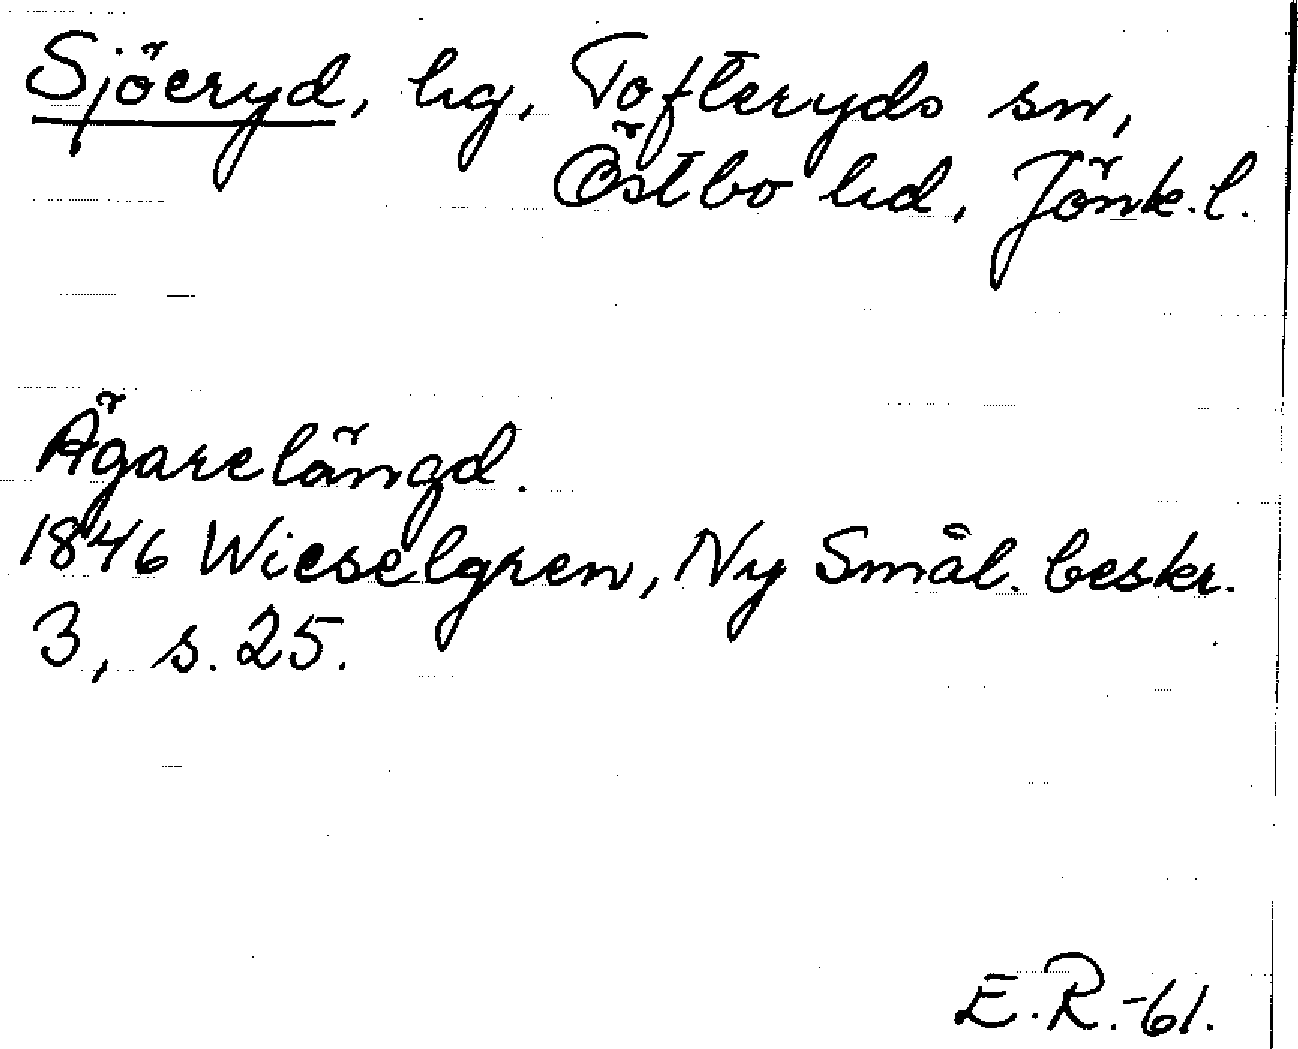 Sjöeryd, hg, Tofteryds sn,
Östbo hd, Jönk. l.
Ägarelängd.
1846 Wieselgren, Ny Smål. beskr.
3, s. 25.
E.R.-61.